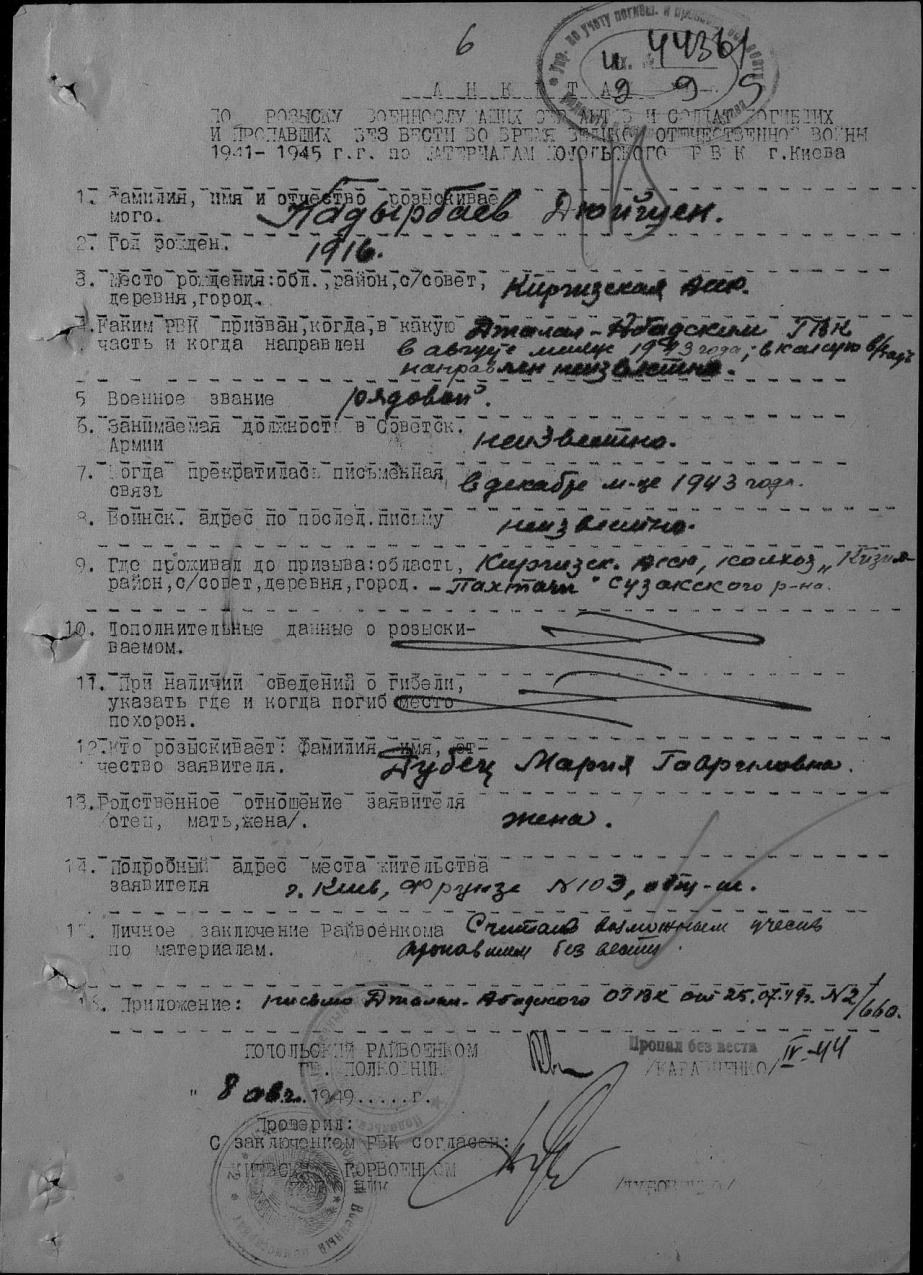 6
Упр. по учету погибш. и пропавш.
44361
9 9 S
А Н К Е Т А
ПО РОЗЫСКУ ВОЕННОСЛУЖАЩИХ СЕРЖАНТОВ И СОЛДАТ ПОГИБШИХ
И ПРОПАВШИХ БЕЗ ВЕСТИ ВО ВРЕМЯ ВЕЛИКОЙ ОТЕЧЕСТВЕННОЙ ВОЙНЫ
1941-1945 г.г. по МАТЕРИАЛАМ ПОДОЛЬСКОГО РВК г.Киева
1. Фамилия, имя и отчество розыскивае
мого. Падырбаев Дюйшен.
2. Год рожден. 1916.
3. Место рождения:обл.,район,с/совет,
деревня,город. Киргизская ССР.
4.Каким РВК призван,когда,в какую Джалал-Абадским ГВК
часть и когда направлен в августе месяце 1943 года; в какую в/часть
направлен неизвестно.
5 Военное звание рядовой.
6. Занимаемая должность в Советск.
Армии неизвестно.
7. Когда прекратилась письменная
связь в декабре м-це 1943 года.
8. Воинск. адрес по послед.письму неизвестно.
9. Где проживал до призыва:область, Киргизск. ССР, колхоз „Кизил-
район,с/совет,деревня,город. -Пахтачи" Сузакского р-на.
10. Дополнительные данные о розыски-
ваемом.
11. При наличии сведений о гибели,
указать где и когда погиб место
похорон.
12.Кто розыскивает: фамилия, имя, от-
чество заявителя. Дубец Мария Гавриловна.
13.Родственное отношение заявителя
/отец, мать,жена/. жена.
14. Подробный адрес места жительства
заявителя г. Киев, Фрунзе №103,
15. Личное заключение Райвоенкома Считаю возможным учесть
по материалам. пропавшим без вести.
16. Приложение: письмо Джалал-Абадского ОГВК от 25.07.49г. №2/660.
ПОДОЛЬСКИЙ РАЙВОЕНКОМ
ГВ. ПОЛКОВНИК /КАРАВЧЕНКО/
Пропал без вести IV-44
" 8 авг. 1949.....г.
Проверил:
С заключением РВК согласен:
КИЕВСКИЙ ГОРВОЕНКОМ